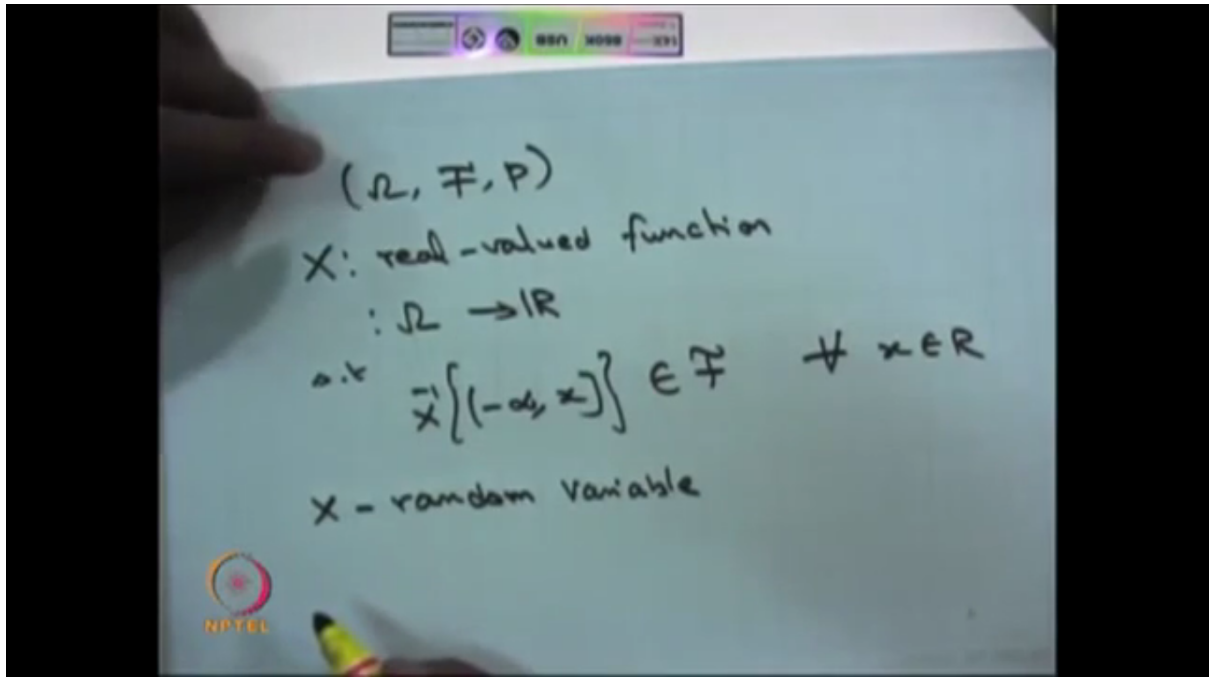 (Ω, F, P)
X: real-valued function
: Ω → IR
s.t X⁻¹{(-∞, x]} ∈ F ∀ x ∈ R
X - random variable
NPTEL